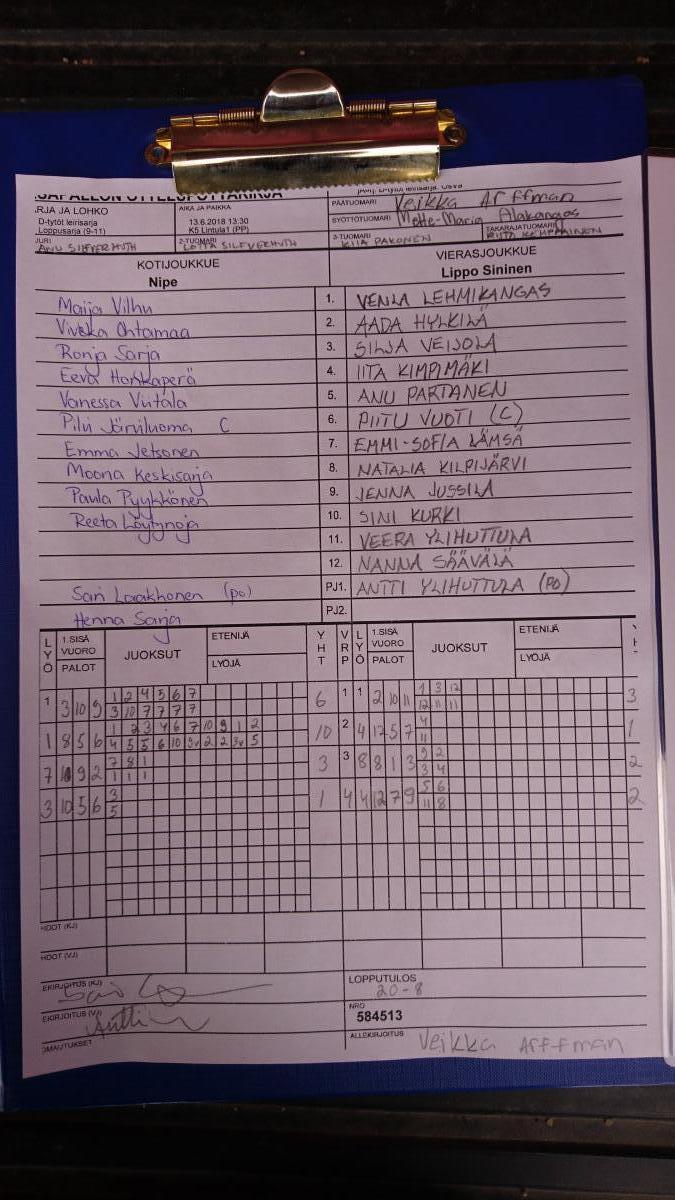 PESÄPALLON OTTELUPÖYTÄKIRJA
D-tytöt leirisarja, Osva
RJA JA LOHKO
D-tytöt leirisarja
Loppusarja (9-11)
AIKA JA PAIKKA
13.6.2018 13:30
K5 Lintula1 (PP)
PÄÄTUOMARI Veikka Arffman
SYÖTTÖTUOMARI Mette-Maria Alakangas
JURI ANU SILFVERHUTH
2-TUOMARI LOTTA SILFVERHUTH
3-TUOMARI KIIA PAKONEN
TAKARAJATUOMARI RIITA KEMPPAINEN
KOTIJOUKKUE
Nipe
VIERASJOUKKUE
Lippo Sininen
Maija Vilhu 1. VENLA LEHMIKANGAS
Viveka Ohtamaa 2. AADA HYLKILÄ
Ronja Sarja 3. SILJA VEIJOLA
Eeva Honkaperä 4. IITA KIMPIMÄKI
Vanessa Viitala 5. ANU PARTANEN
Pilvi Järviluoma C 6. PIITU VUOTI (C)
Emma Jetsonen 7. EMMI-SOFIA LÄMSÄ
Moona Keskisarja 8. NATALIA KILPIJÄRVI
Paula Pyykkönen 9. JENNA JUSSILA
Reeta Löytynoja 10. SINI KURKI
11. VEERA YLIHUTTULA
12. NANNA SÄÄVÄLÄ
Sari Laakkonen (po) PJ1. ANTTI YLIHUTTULA (PO)
Henna Sarja PJ2.
LYÖ 1.SISÄ VUORO PALOT JUOKSUT ETENIJÄ LYÖJÄ YHT VRP LYÖ 1.SISÄ VUORO PALOT JUOKSUT ETENIJÄ LYÖJÄ
1 3 10 9 1 2 4 5 6 7 6 1 1 2 10 11 1 3 12 3
3 10 7 7 7 7 12 11 11
1 8 5 6 1 2 3 4 6 7 10 9 1 2 10 2 4 12 5 7 4 1
4 5 5 6 10 3v 2 2 3v 5 11
7 9 2 7 8 1 3 3 8 8 1 3 9 2 2
1 1 1 3 4
3 10 5 6 3 1 4 4 12 7 9 5 6 2
5 11 8
HDOT (KJ)
HDOT (VJ)
EKIRJOITUS (KJ)
LOPPUTULOS
20-8
EKIRJOITUS (VJ) Antti
NRO
584513
OMAUTUKSET
ALLEKIRJOITUS Veikka Arffman